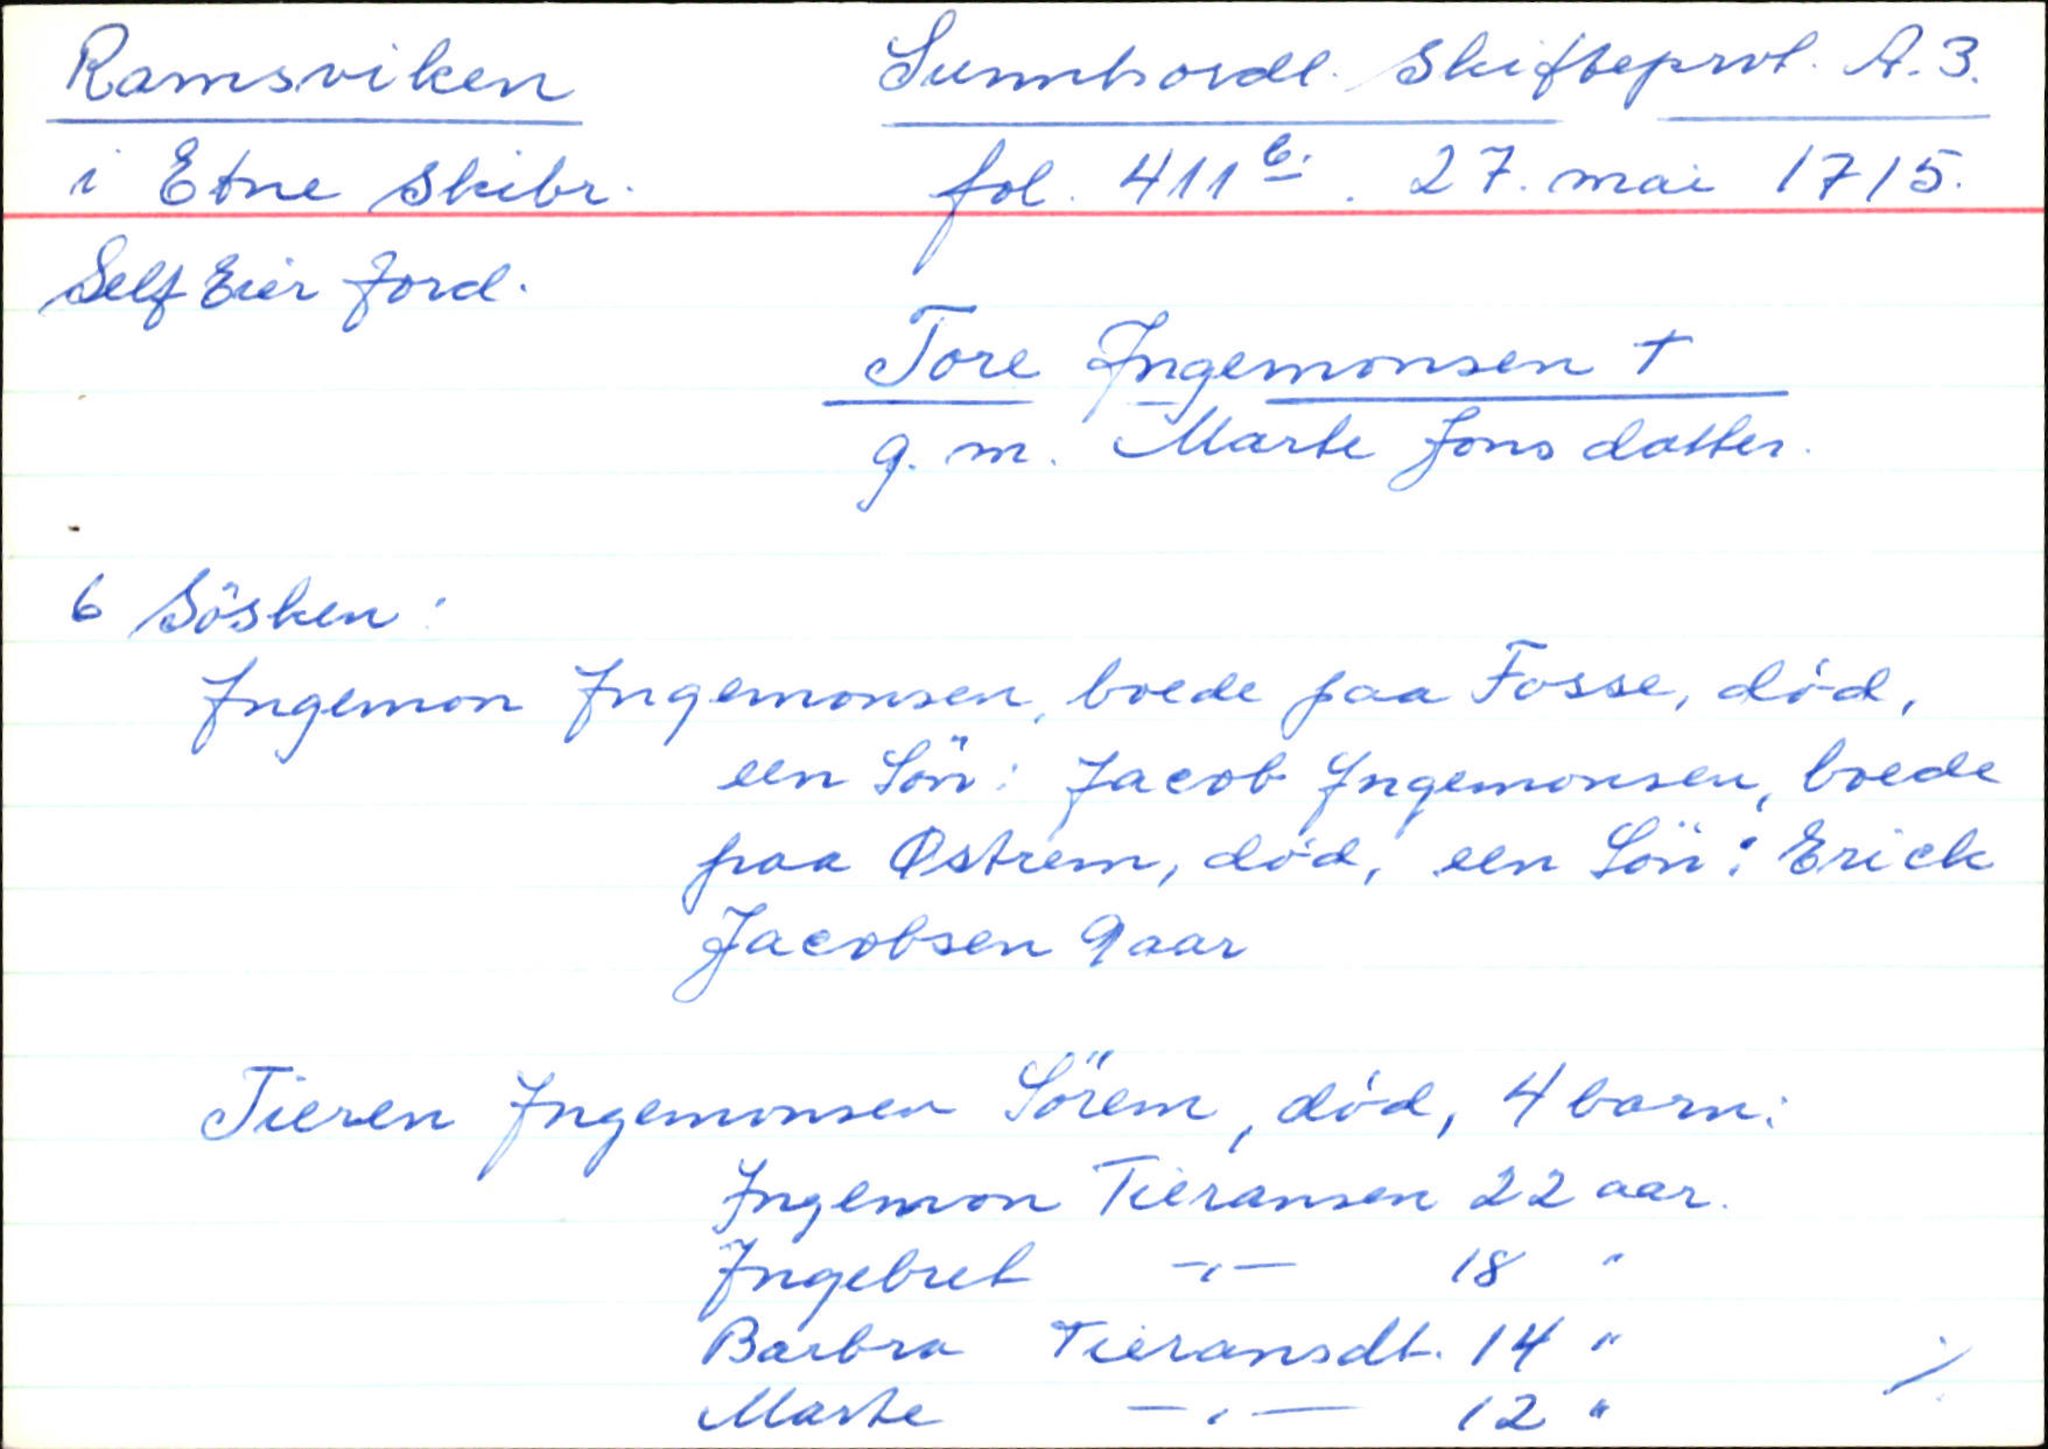 Ramsviken
Sunnhordl. Skifteprot. A.3.
i Etne Skibr.
fol. 411b. 27. mai 1715.
Self Eier Jord.
Tore Ingemonsen †
g. m. Marte Jonsdatter.
6 Sösken:
Ingemon Ingemonsen, boede paa Fosse, död,
een Sön: Jacob Ingemonsen, boede
paa Østrem, död, een Sön: Erick
Jacobsen 9 aar
Tieren Ingemonsen Sörem, död, 4 barn:
Ingemon Tieransen 22 aar.
Ingebret -,- 18 "
Barbra Tieransdt. 14 "
Marte -,- 12 "
./.